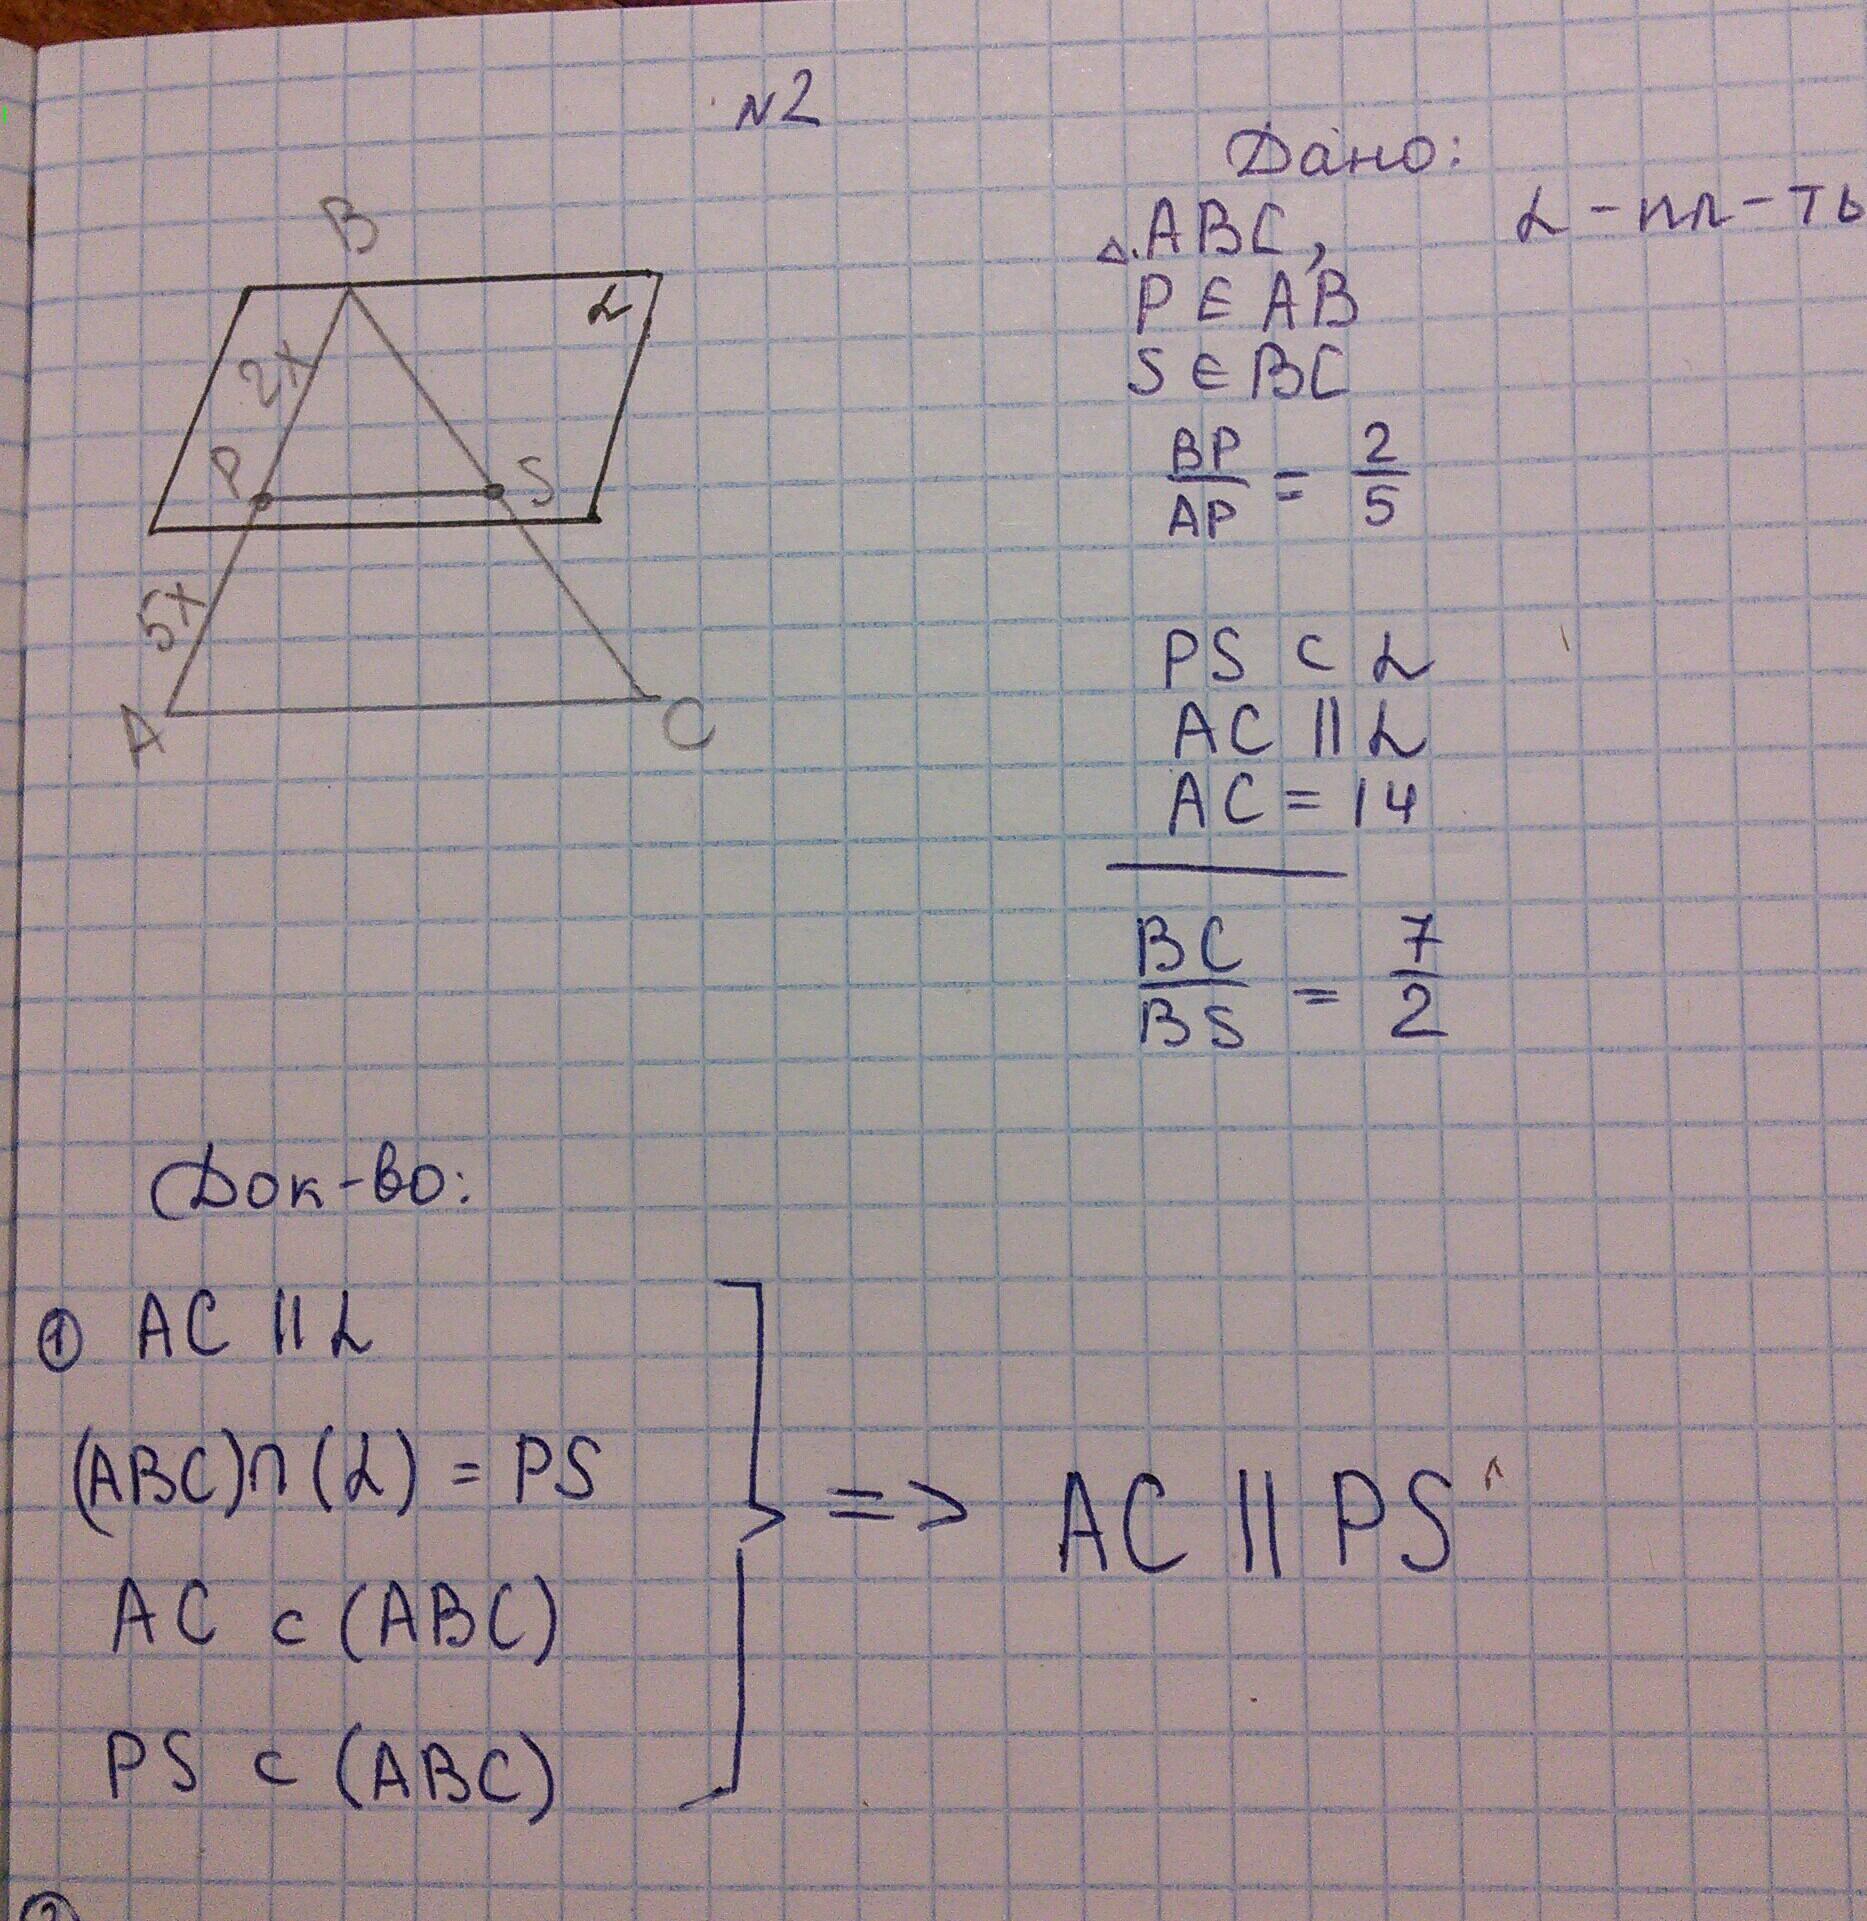 N2
Дано:
△ABC, α - пл-ть
P ∈ AB
S ∈ BC
BP/AP = 2/5
PS ⊂ α
AC || α
AC = 14
BC/BS = 7/2
B
α
2x
P
S
5x
A
C
Док-во:
① AC || α
(ABC)∩(α) = PS
AC ⊂ (ABC)
PS ⊂ (ABC)
=> AC || PS